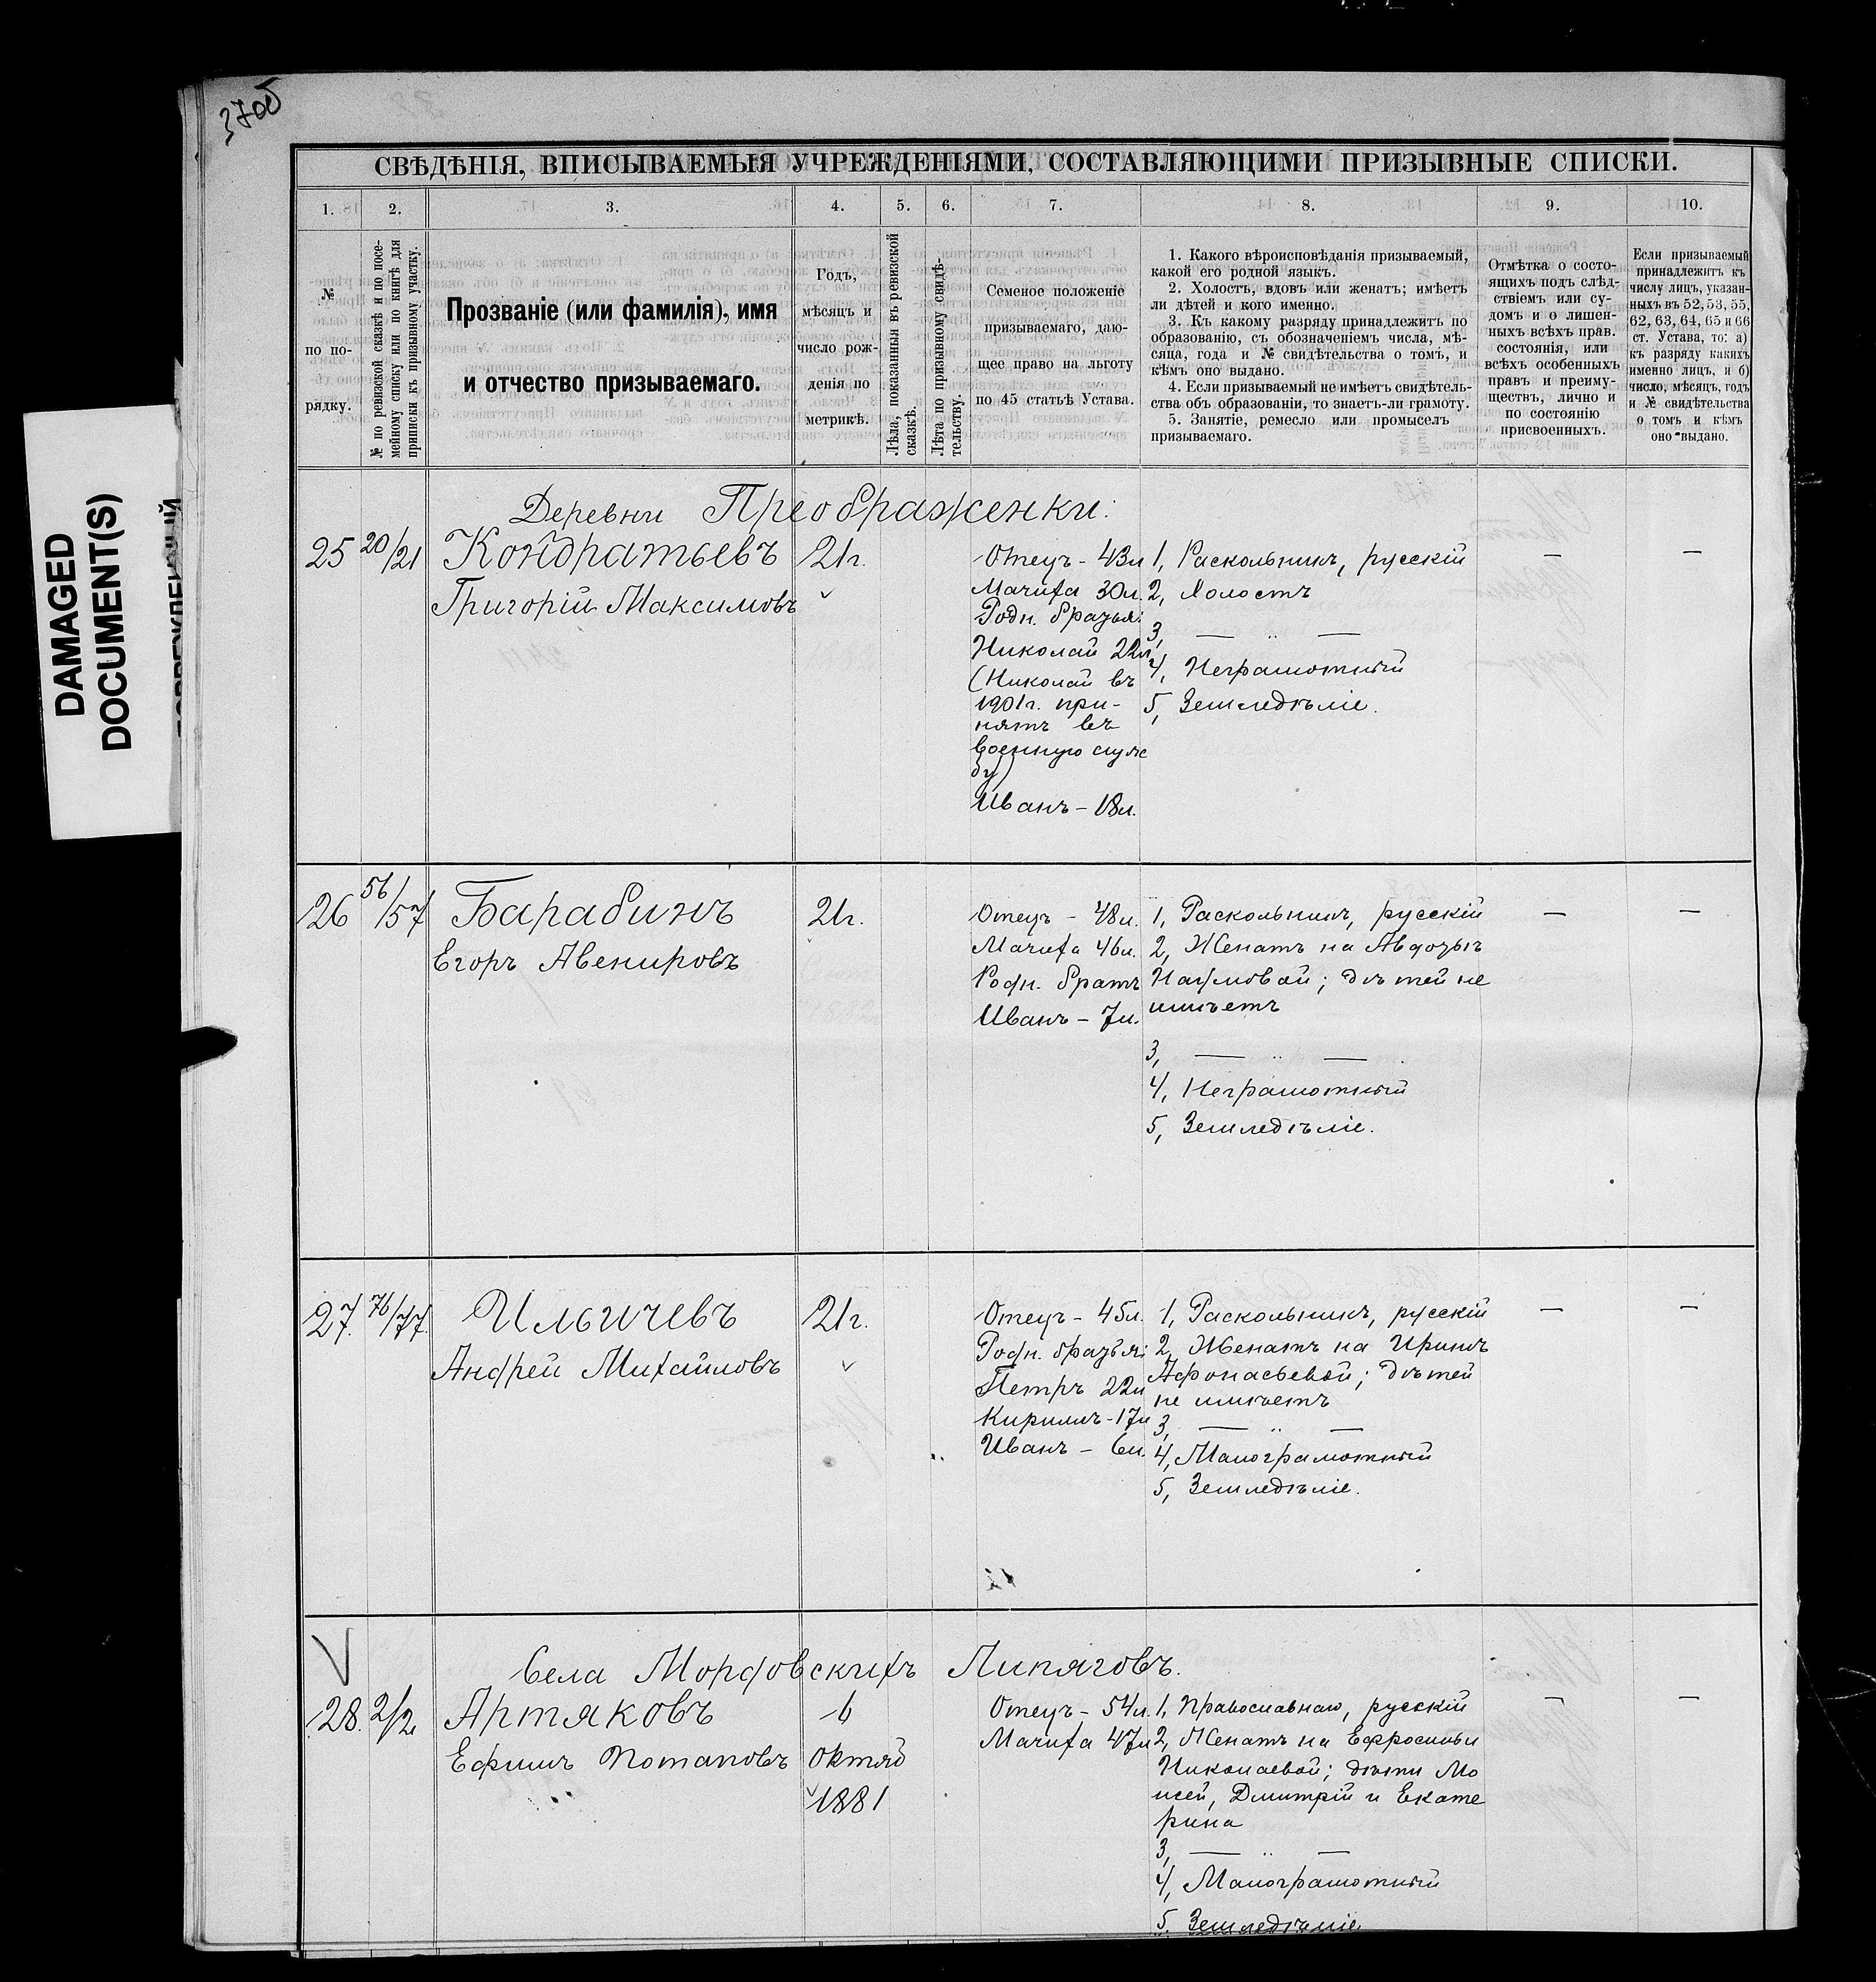 37об
СВѢДѢНІЯ, ВПИСЫВАЕМЫЯ УЧРЕЖДЕНІЯМИ, СОСТАВЛЯЮЩИМИ ПРИЗЫВНЫЕ СПИСКИ.
1. 2. 3. 4. 5. 6. 7. 8. 9. 10.
№
по по-
рядку.
№ по ревизской сказкѣ и по посе-
мейному списку или по книгѣ для
приписки къ призывному участку.
Прозваніе (или фамилія), имя
и отчество призываемаго.
Годъ,
мѣсяцъ и
число рож-
денія по
метрикѣ.
Лѣта, показанныя въ ревизской
сказкѣ.
Лѣта по призывному свидѣ-
тельству.
Семеное положеніе
призываемаго, даю-
щее право на льготу
по 45 статьѣ Устава.
1. Какого вѣроисповѣданія призываемый,
какой его родной языкъ.
2. Холостъ, вдовъ или женатъ; имѣетъ
ли дѣтей и кого именно.
3. Къ какому разряду принадлежитъ по
образованію, съ обозначеніемъ числа, мѣ-
сяца, года и № свидѣтельства о томъ, и
кѣмъ оно выдано.
4. Если призываемый не имѣетъ свидѣтель-
ства объ образованіи, то знаетъ-ли грамоту.
5. Занятіе, ремесло или промыселъ
призываемаго.
Отмѣтка о состо-
ящихъ подъ слѣд-
ствіемъ или су-
домъ и о лишен-
ныхъ всѣхъ прав.
состоянія, или
всѣхъ особенныхъ
правъ и преиму-
ществъ, лично и
по состоянію
присвоенныхъ.
Если призываемый
принадлежитъ къ
числу лицъ, указан-
ныхъ въ 52, 53, 55,
62, 63, 64, 65 и 66
ст. Устава, то: а)
къ разряду какихъ
именно лицъ, и б)
число, мѣсяцъ, годъ
и № свидѣтельства
о томъ и кѣмъ
оно выдано.
DAMAGED
DOCUMENT(S)
Деревни Преображенки:
25 20/21 Кондратьевъ 21г.
Григорій Максимовъ
Отецъ - 43л
Мачиха 30л.
Родн. братья:
Николай 22л
(Николай въ
1901г. при-
нятъ въ
военную служ
бу)
Иванъ - 18л.
1, Раскольникъ, русскій
2, Холостъ
3, — " —
4, Неграмотный
5, Земледѣліе.
— —
26 56/57 Барабинъ 21г.
Егоръ Авенировъ
Отецъ - 48л.
Мачиха 46л.
Родн. братъ
Иванъ - 7л.
1, Раскольникъ, русскій
2, Женатъ на Авдотьѣ
Наумовой; дѣтей не
имѣетъ
3, — " —
4, Неграмотный
5, Земледѣліе.
— —
27. 76/77. Ильичевъ 21г.
Андрей Михайловъ
Отецъ - 45л.
Родн. братья:
Петръ 22л
Кириллъ - 17л
Иванъ - 6л.
1, Раскольникъ, русскій
2, Женатъ на Иринѣ
Афонасьевой; дѣтей
не имѣетъ
3, — " —
4, Малограмотный
5, Земледѣліе.
— —
Села Мордовскихъ Липяговъ.
28. 2/2 Артяковъ
Ефимъ Потаповъ
6
Октяб
1881
Отецъ - 54л.
Мачиха 47л
1, Православнаго, русскій
2, Женатъ на Ефросиньи
Николаевой; дѣти Мо
исей, Дмитрій и Екате
рина
3, — " —
4, Малограмотный
5. Земледѣліе.
— —